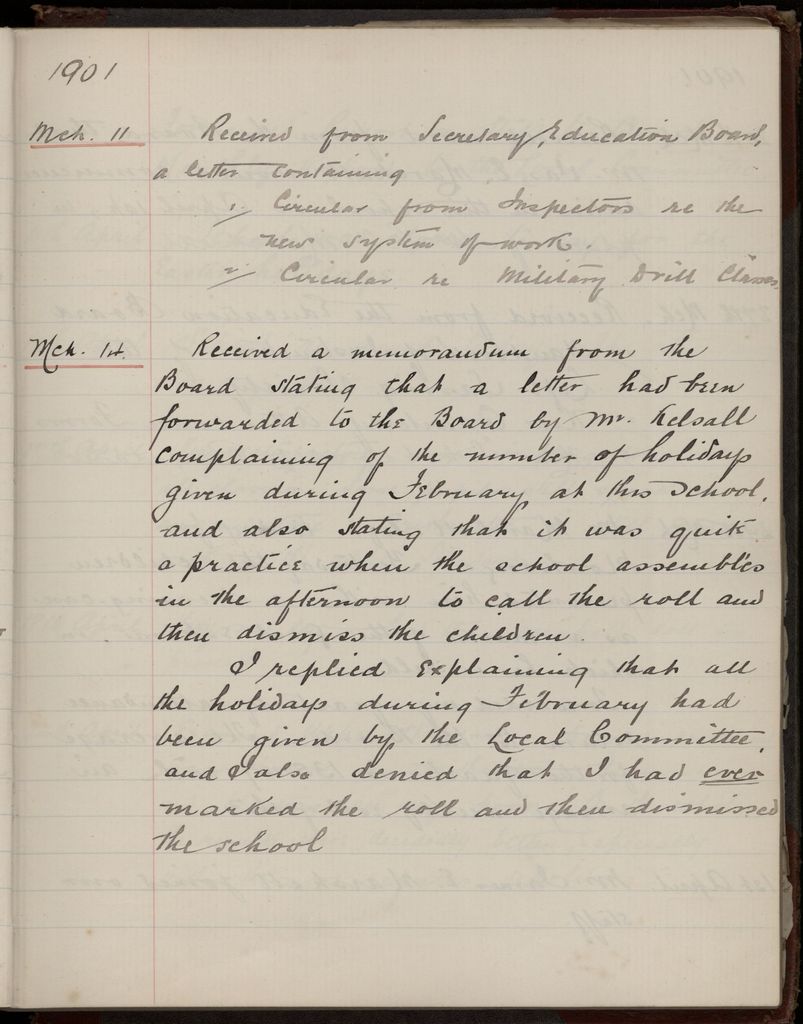 1901
Mch. 11 Received from Secretary, Education Board,
a letter containing
1/ Circular from Inspectors re the
new system of work.
2/ Circular re Military Drill Classes
Mch. 14 Received a memorandum from the
Board stating that a letter had been
forwarded to the Board by Mr. Kelsall
complaining of the number of holidays
given during February at this School,
and also stating that it was quite
a practice when the school assembles
in the afternoon to call the roll and
then dismiss the children.
I replied explaining that all
the holidays during February had
been given by the Local Committee,
and I also denied that I had ever
marked the roll and then dismissed
the school